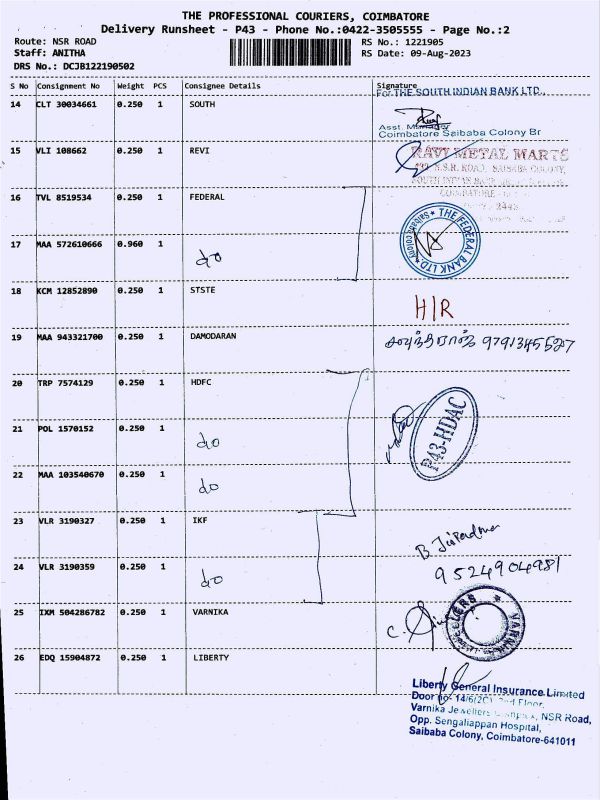 THE PROFESSIONAL COURIERS, COIMBATORE
Delivery Runsheet - P43 - Phone No.:0422-3505555 - Page No.:2
Route: NSR ROAD RS No.: 1221905
Staff: ANITHA RS Date: 09-Aug-2023
DRS No.: DCJB122190502
S No Consignment No Weight PCS Consignee Details Signature
For THE SOUTH INDIAN BANK LTD.,
14 CLT 30034661 0.250 1 SOUTH
Asst. Manager
Coimbatore Saibaba Colony Br
15 VLI 108662 0.250 1 REVI
RAVI METAL MARTS
N.S.R. ROAD, SAIBABA COLONY,
SOUTH INDIAN BANK
COIMBATORE
2443
16 TVL 8519534 0.250 1 FEDERAL
THE FEDERAL BANK LTD. * Saibaba Colony *
17 MAA 572610666 0.960 1 do
18 KCM 12852890 0.250 1 STSTE
H/R
19 MAA 943321700 0.250 1 DAMODARAN
9791345527
20 TRP 7574129 0.250 1 HDFC
P43-HDAC
21 POL 1570152 0.250 1 do
22 MAA 103540670 0.250 1 do
23 VLR 3190327 0.250 1 IKF
B
24 VLR 3190359 0.250 1 do
9524904981
25 IXM 504286782 0.250 1 VARNIKA
C.
VARNIKA JEWELLERS
26 EDQ 15904872 0.250 1 LIBERTY
Liberty General Insurance Limited
Door no- 14/6(2C), 2nd Floor,
Varnika Jewellers Complex, NSR Road,
Opp. Sengaliappan Hospital,
Saibaba Colony, Coimbatore-641011